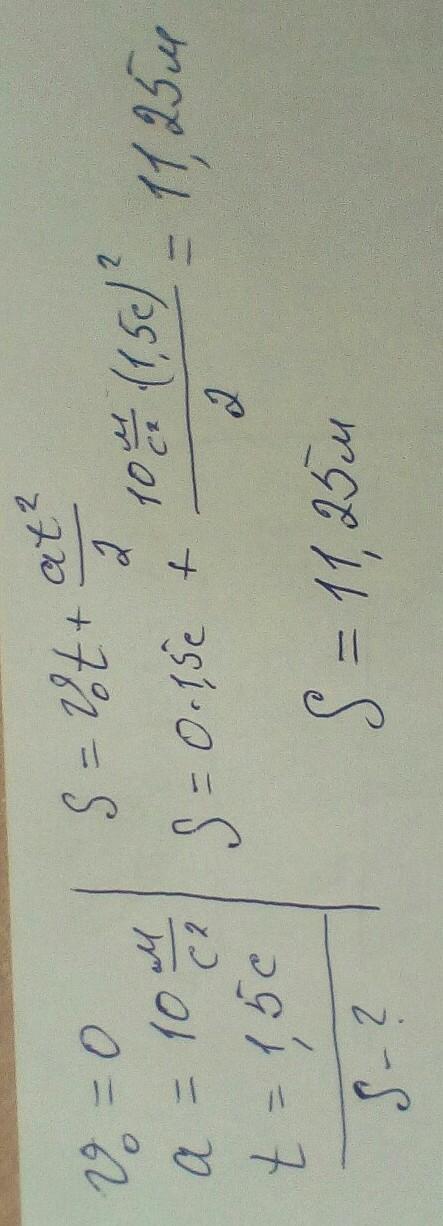 v₀ = 0
a = 10 м/с²
t = 1,5с
S - ?
S = v₀t + at²/2
S = 0·1,5с + 10 м/с² · (1,5с)²/2 = 11,25м
S = 11,25м